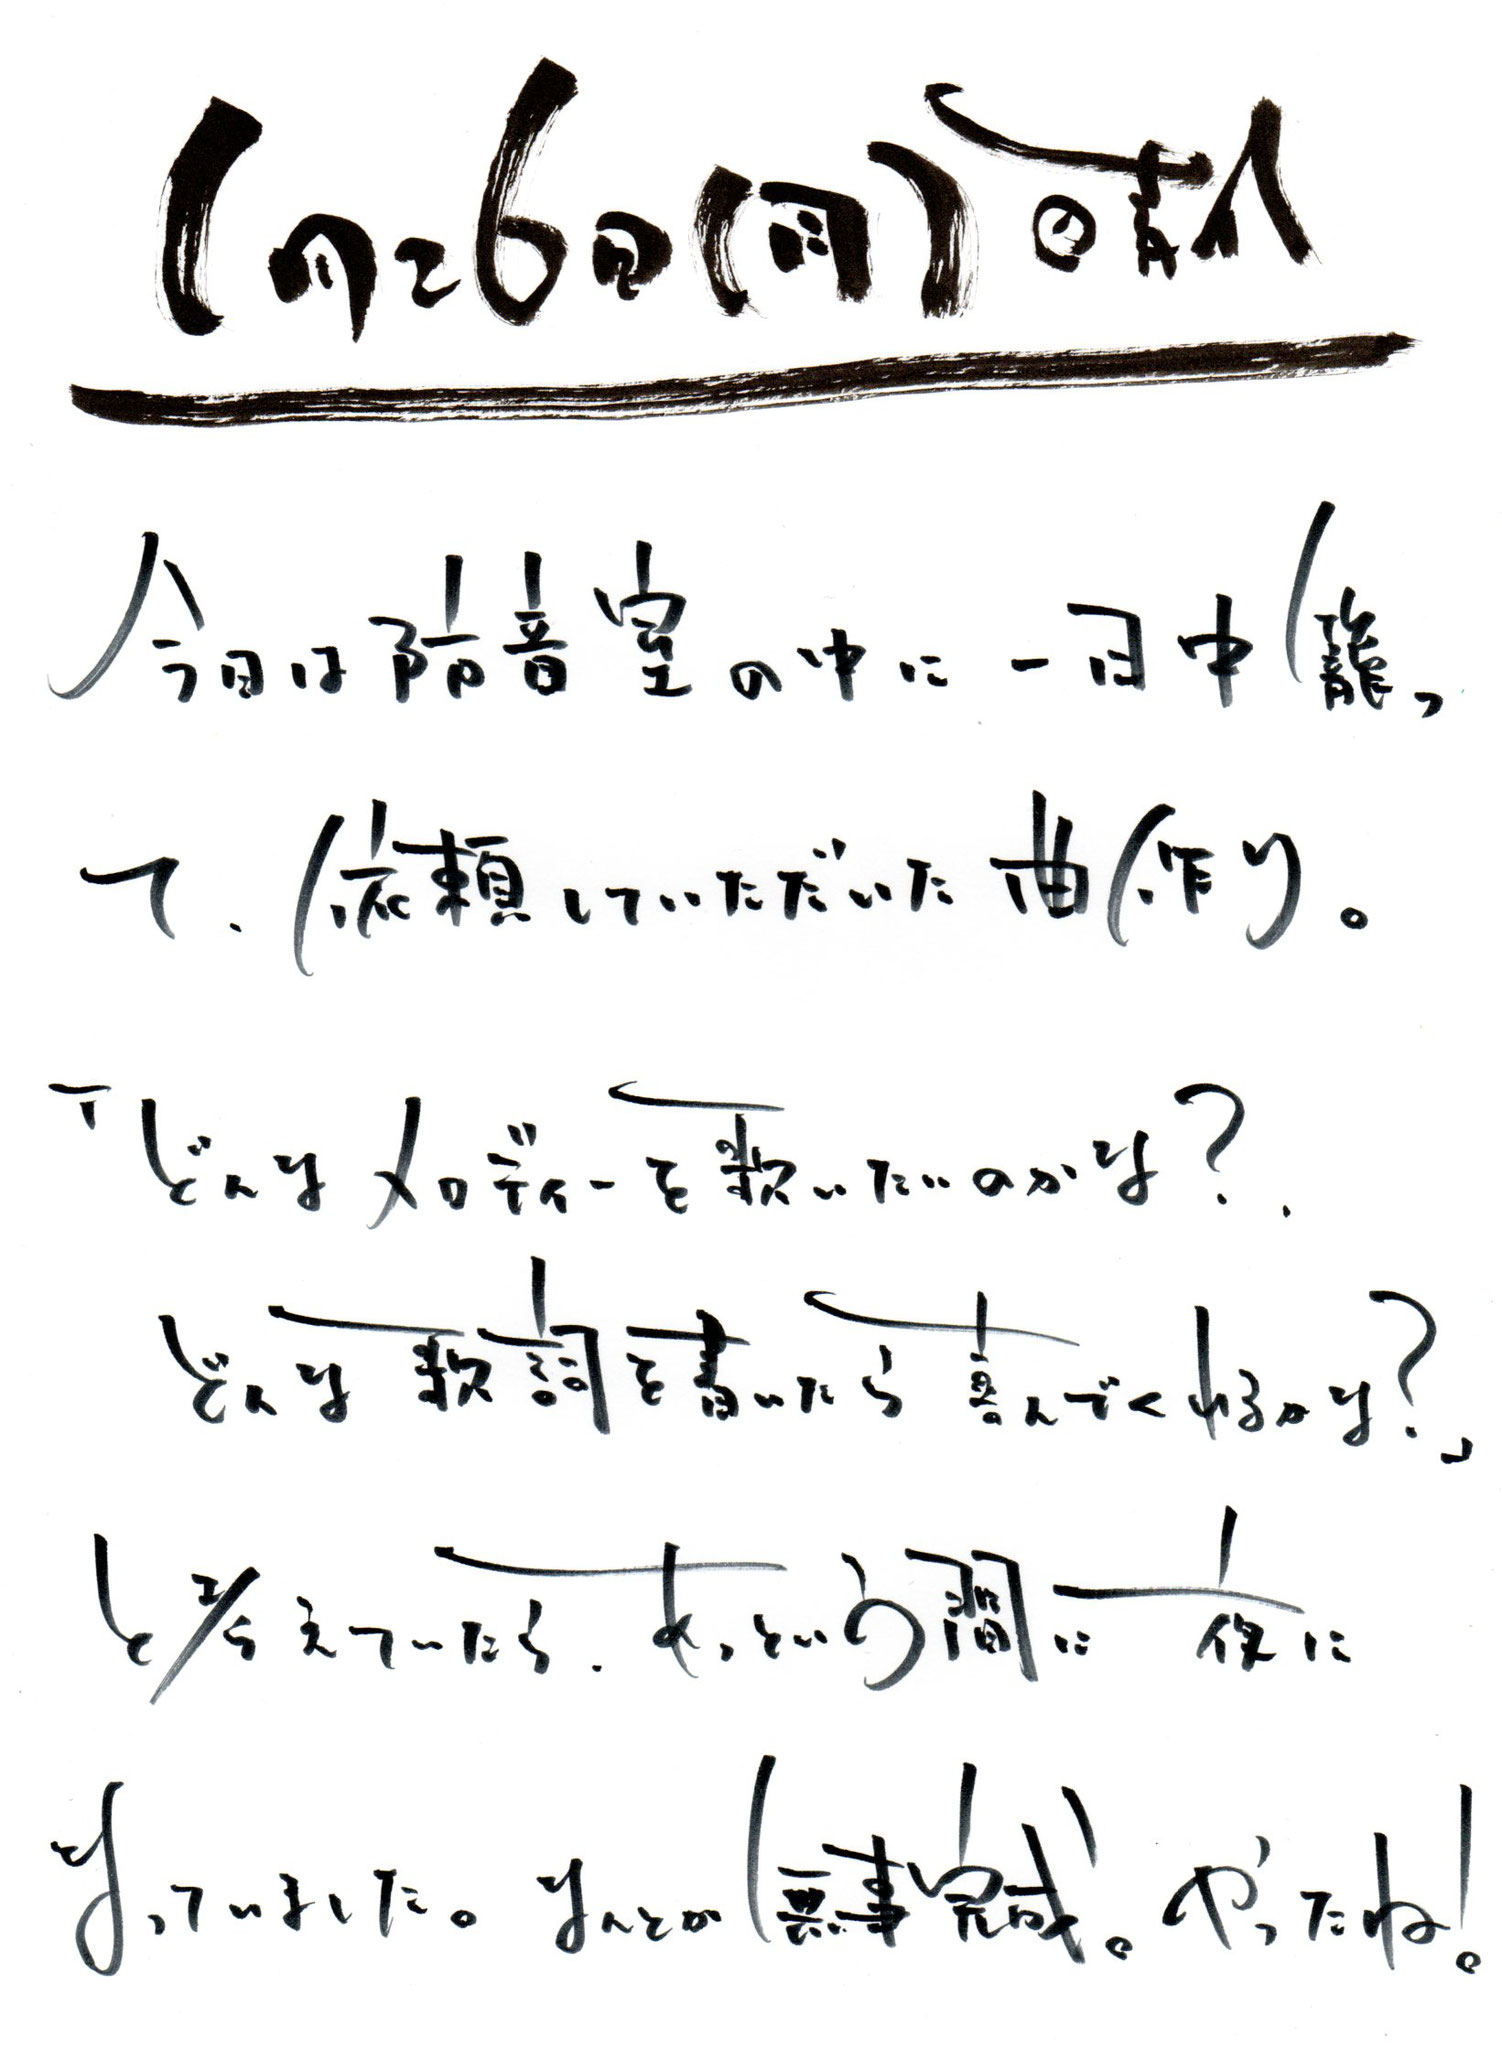 1月26日(月)の
今日は防音室の中に一日中籠っ
て、依頼していただいた曲作り。
「どんなメロディーを歌いたいのかな？、
どんな歌詞を書いたら喜んでくれるかな？」
と考えていたら、あっという間に夜に
なっていました。なんとか無事完成。やったね！